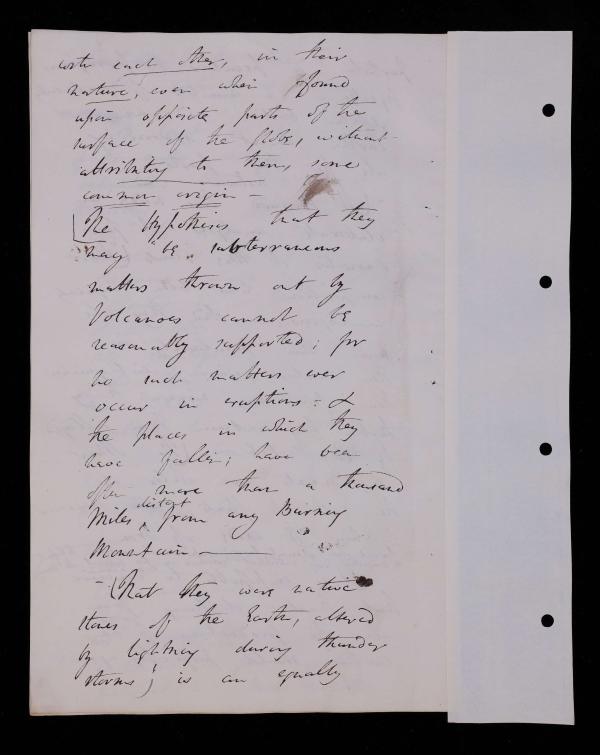 with each other, in their
nature, even when found
upon opposite parts of the
surface of the globe, without
attributing to them, some
common origin —
[The Hypothesis that they
may be subterraneous
matters thrown out by
Volcanoes cannot be
reasonably supported; for
no such matters ever
occur in eruptions = &
the places in which they
have fallen; have been
often more than a thousand
distant
Miles, from any Burning
Mountain. ———
— (That they were native
stones of the Earth, altered
by lightning during thunder
storms; is an equally